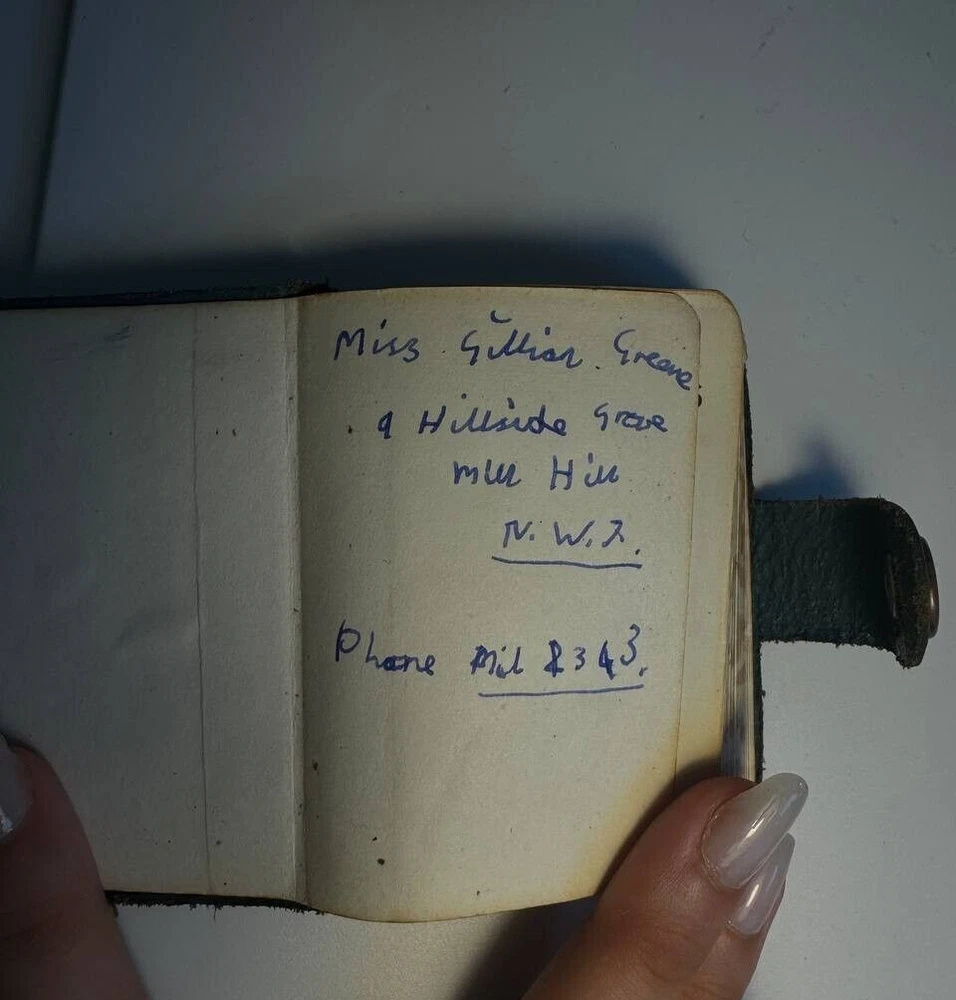 Miss Gillian Greene
9 Hillside Grove
Mill Hill
N.W.7.
Phone Mil 2343.